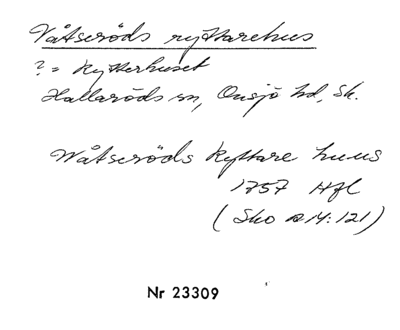 Våtseröds ryttarehus
? = Rytterhuset
Hallaröds sn, Onsjö hd, Sk.
Wåtseröds Ryttare huus
1757 Hfl
(Sko a 14:121)
Nr 23309